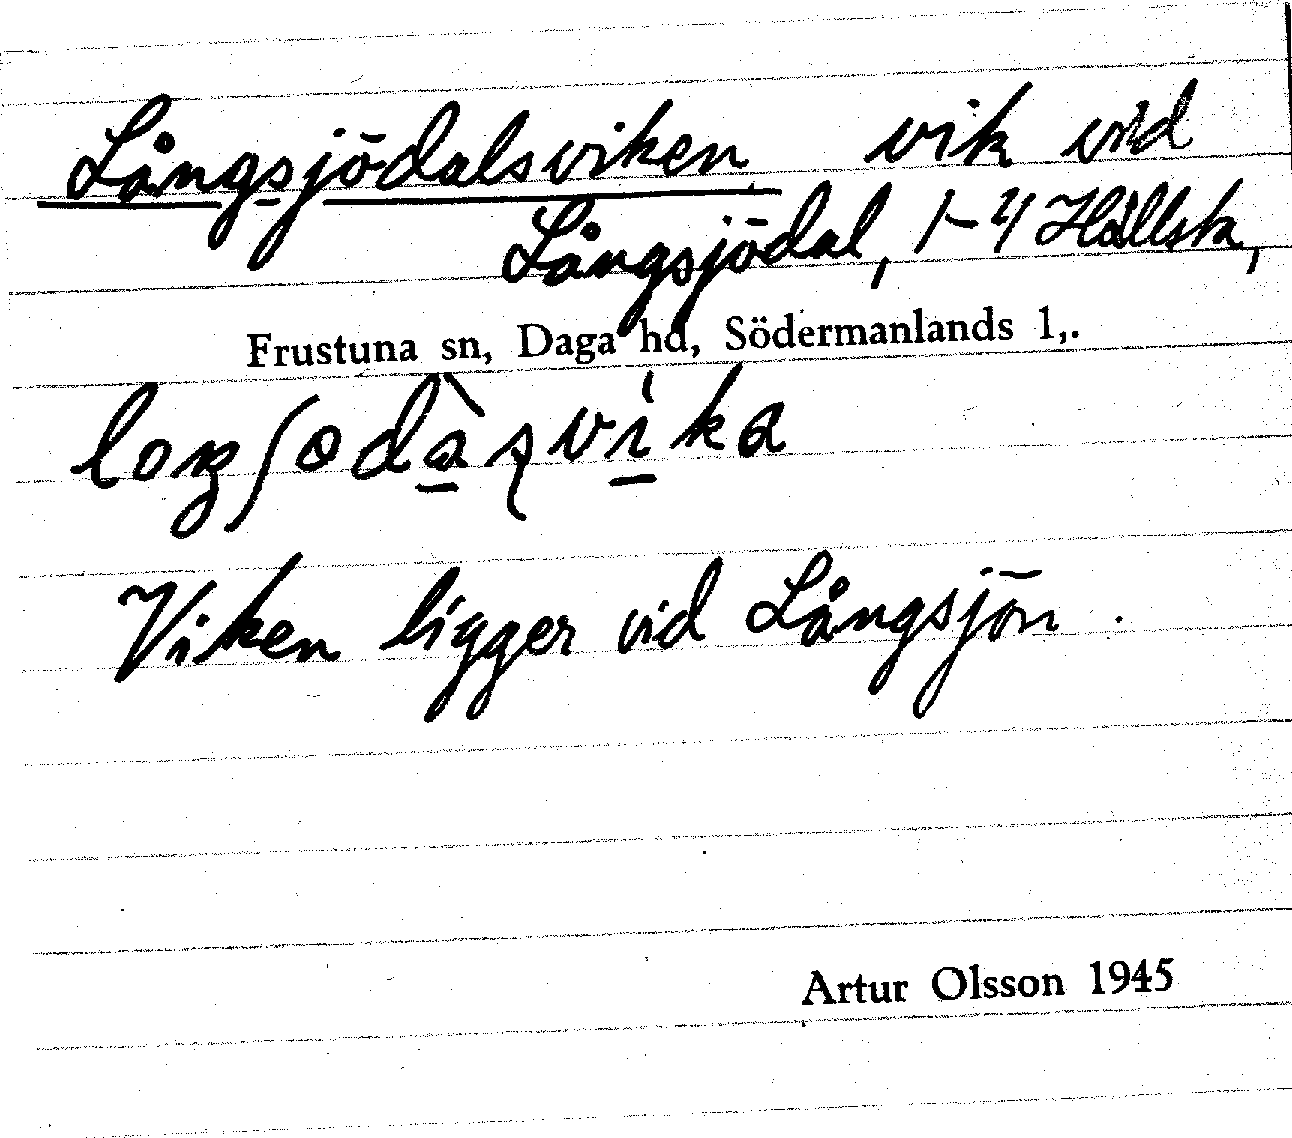 Långsjödalsviken vik vid
Långsjödal, 1-4 Hållsta,
Frustuna sn, Daga hd, Södermanlands l,.
Viken ligger vid Långsjön.
Artur Olsson 1945